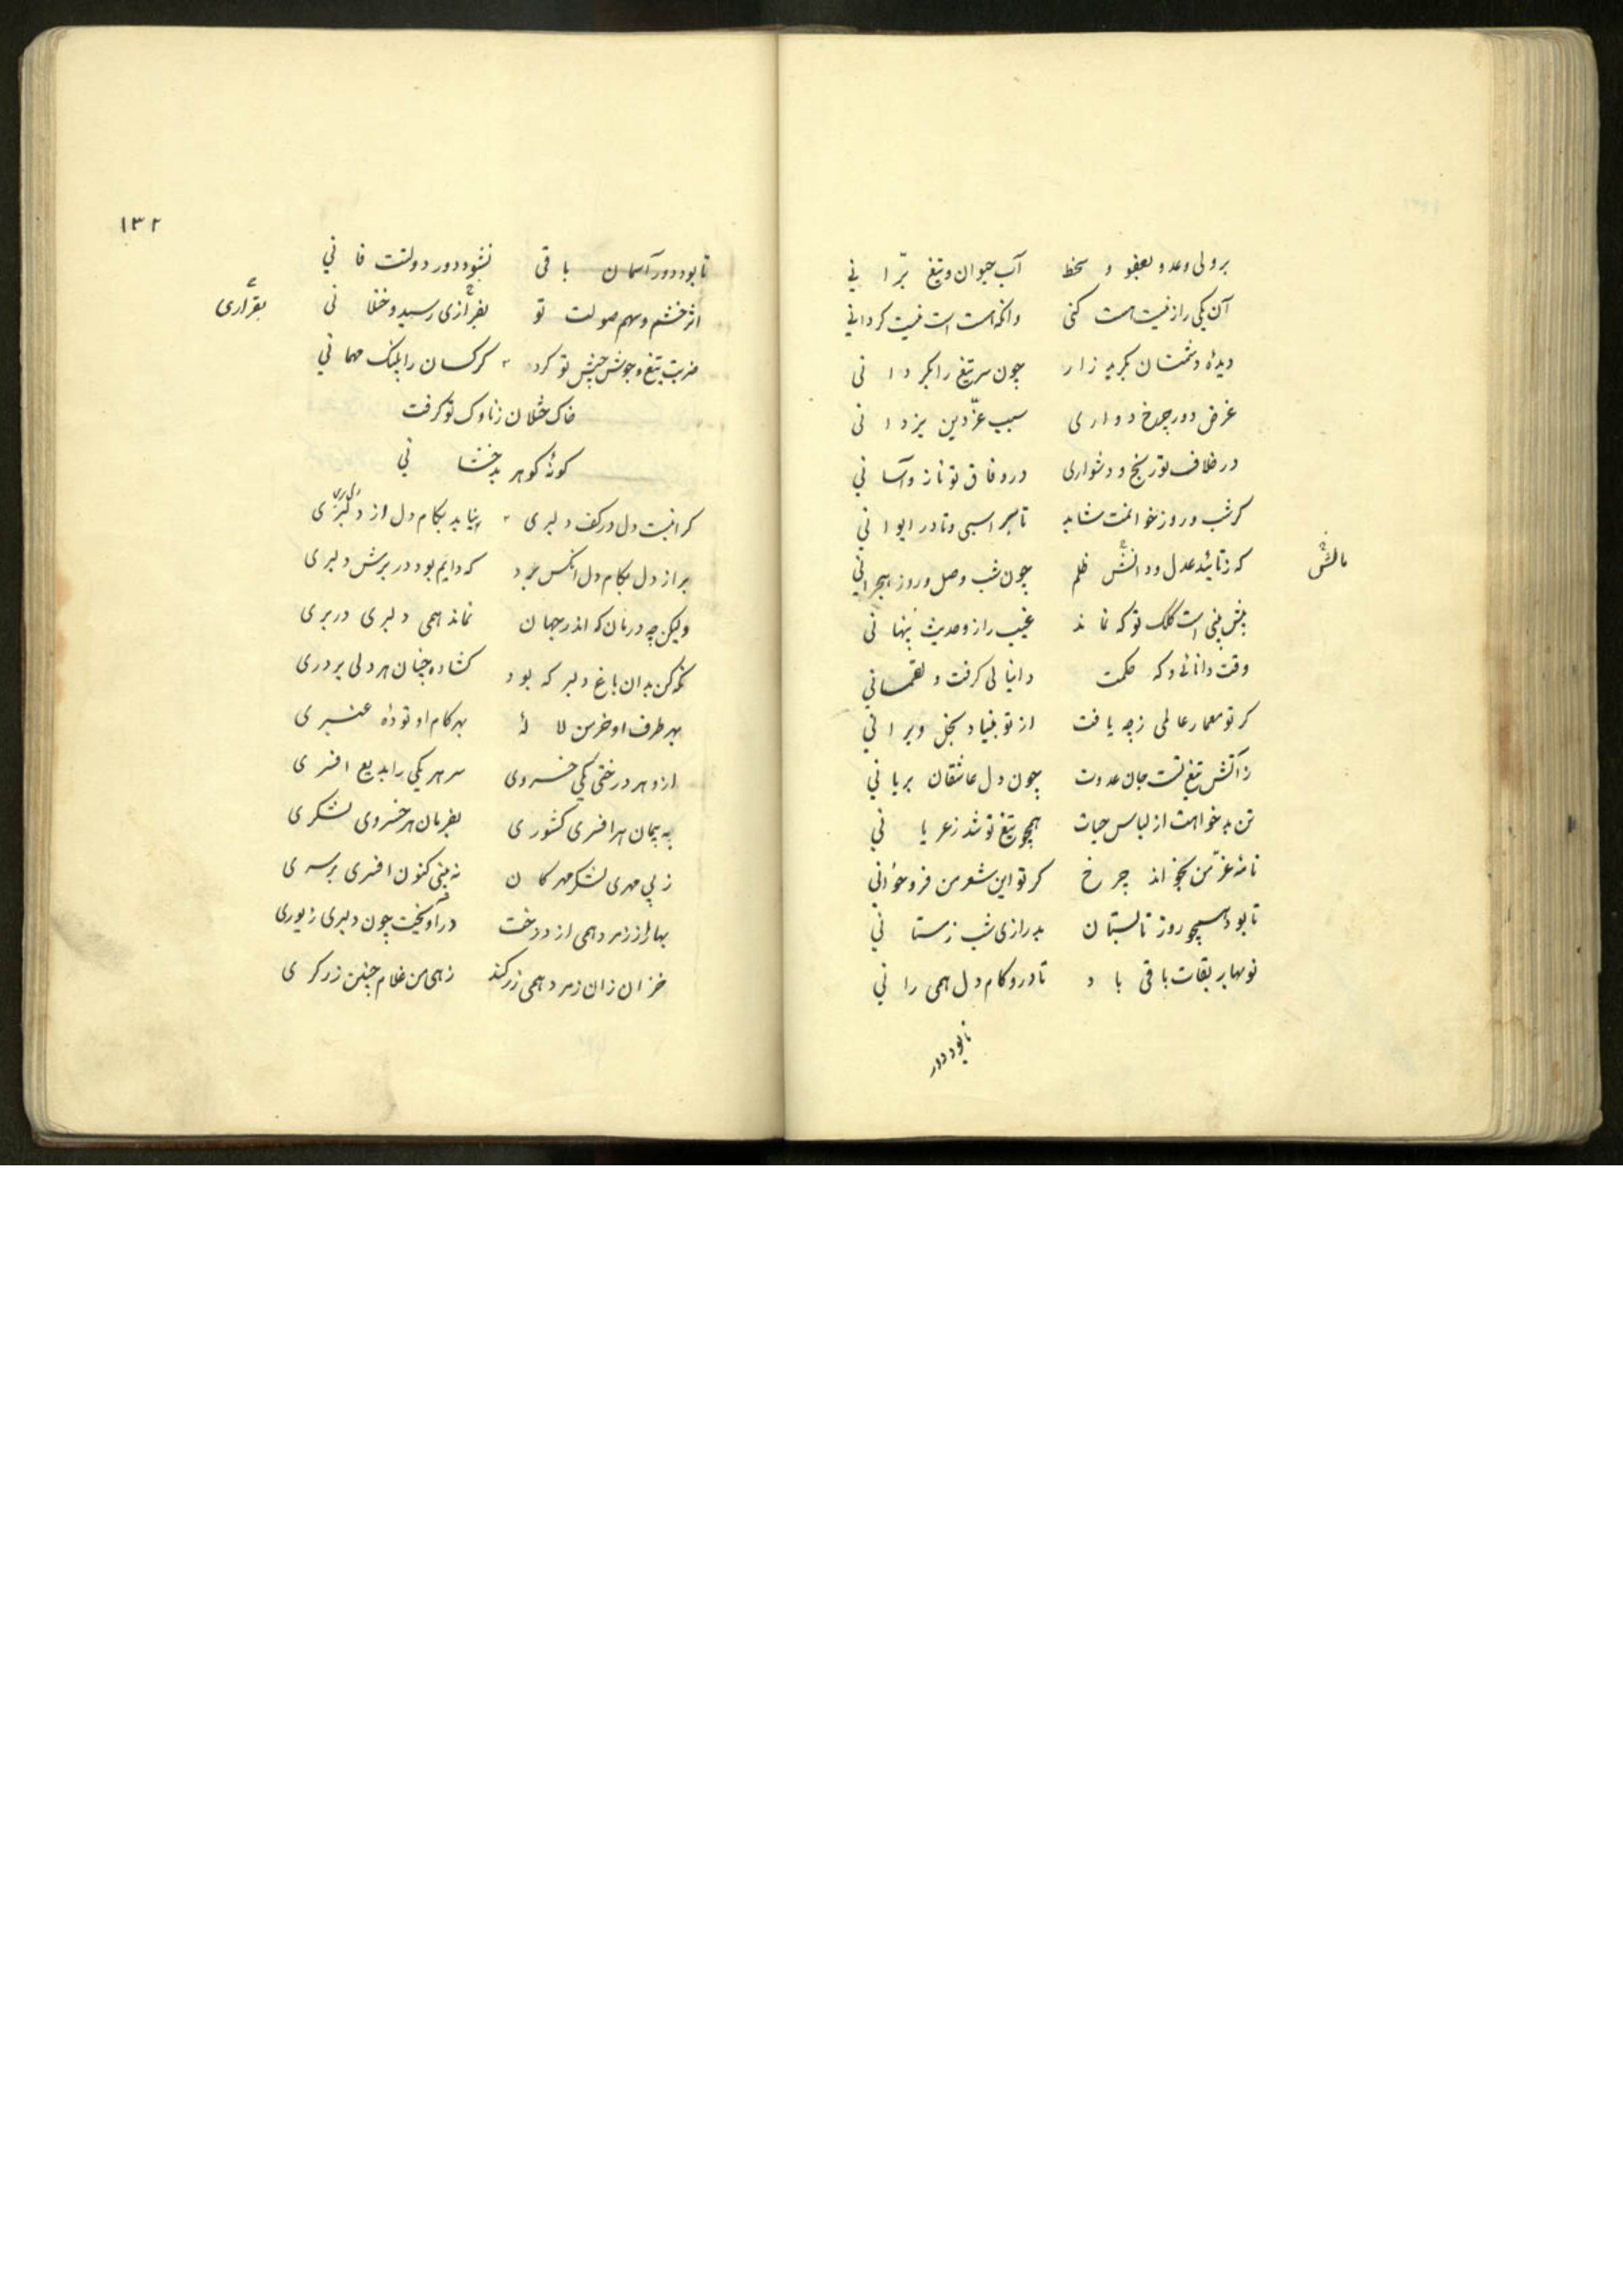 برولی وعدو بعفو و سخط آب حیوان و تیغ برّانی
آن یکی راز نیست هست کنی وانکه هست است نیست کردانی
دیدهٔ دشمنان بکرید زار چون سر تیغ را بکردانی
غرض دور چرخ دواری سبب عزّ دین یزدانی
در خلاف تو رنج و دشواری در وفاق تو ناز و آسانی
کر شب و روز خوانمت شاید تا بر اسبی و تا در ایوانی
که ز تائید عدل و دانش ظلم چون شب وصل و روز هجرانی
مالش
پیش بینی است کلک تو که نماند غیب راز و حدیث پنهانی
وقت دانائی و که حکمت دانیالی کرفت و لقمانی
کر تو معمار عالمی ز چه یافت از تو بنیاد بخل ویرانی
ز آتش تیغ تست جان عدوت چون دل عاشقان بریانی
تن بدخواهت از لباس حیات همچو تیغ تو شد ز عریانی
نامهٔ عزّ من بخواند چرخ کر تو این شعر من فروخوانی
تا بود همچو روز تابستان بدرازی شب زمستانی
نوبهار بقات باقی باد تا درو کام دل همی رانی
تا بود دور
۱۳۲
تا بود دور آسمان باقی نشود دور دولتت فانی
اثر خشم و سهم صولت تو بغرازی رسید و ختلانی
بقراری
ضربت تیغ و جوشش جیش تو کرد کرکسان را پلنک مهمانی
خاک ختلان ز ناوک تو کرفت
کونهٔ کوهر بدخشانی
کرانیست دل در کف دلبری نیاید بکام دل از دلبری
بر از دل بکام دل انکس برد که دایم بود در برش دلبری
ولیکن چه درمان که اندر جهان نماند همی دلبری در بری
نکه کن بدان باغ دلبر که بود کشاده چنان هر دلی بر دری
بهر طرف او خرمن لالهٔ بهر کام او تودهٔ عنبری
ازو هر درختی یکی خسروی سر هر یکی را بدیع افسری
به پیمان هر افسری کشوری بفرمان هر خسروی لشکری
ز بی مهری لشکر مهرکان نه بینی کنون افسری بر سری
بهار از زمرد همی از درخت درآویخت چون دلبری زیوری
خزان زان زمرد همی زر کند زهی من غلام چنین زرکری